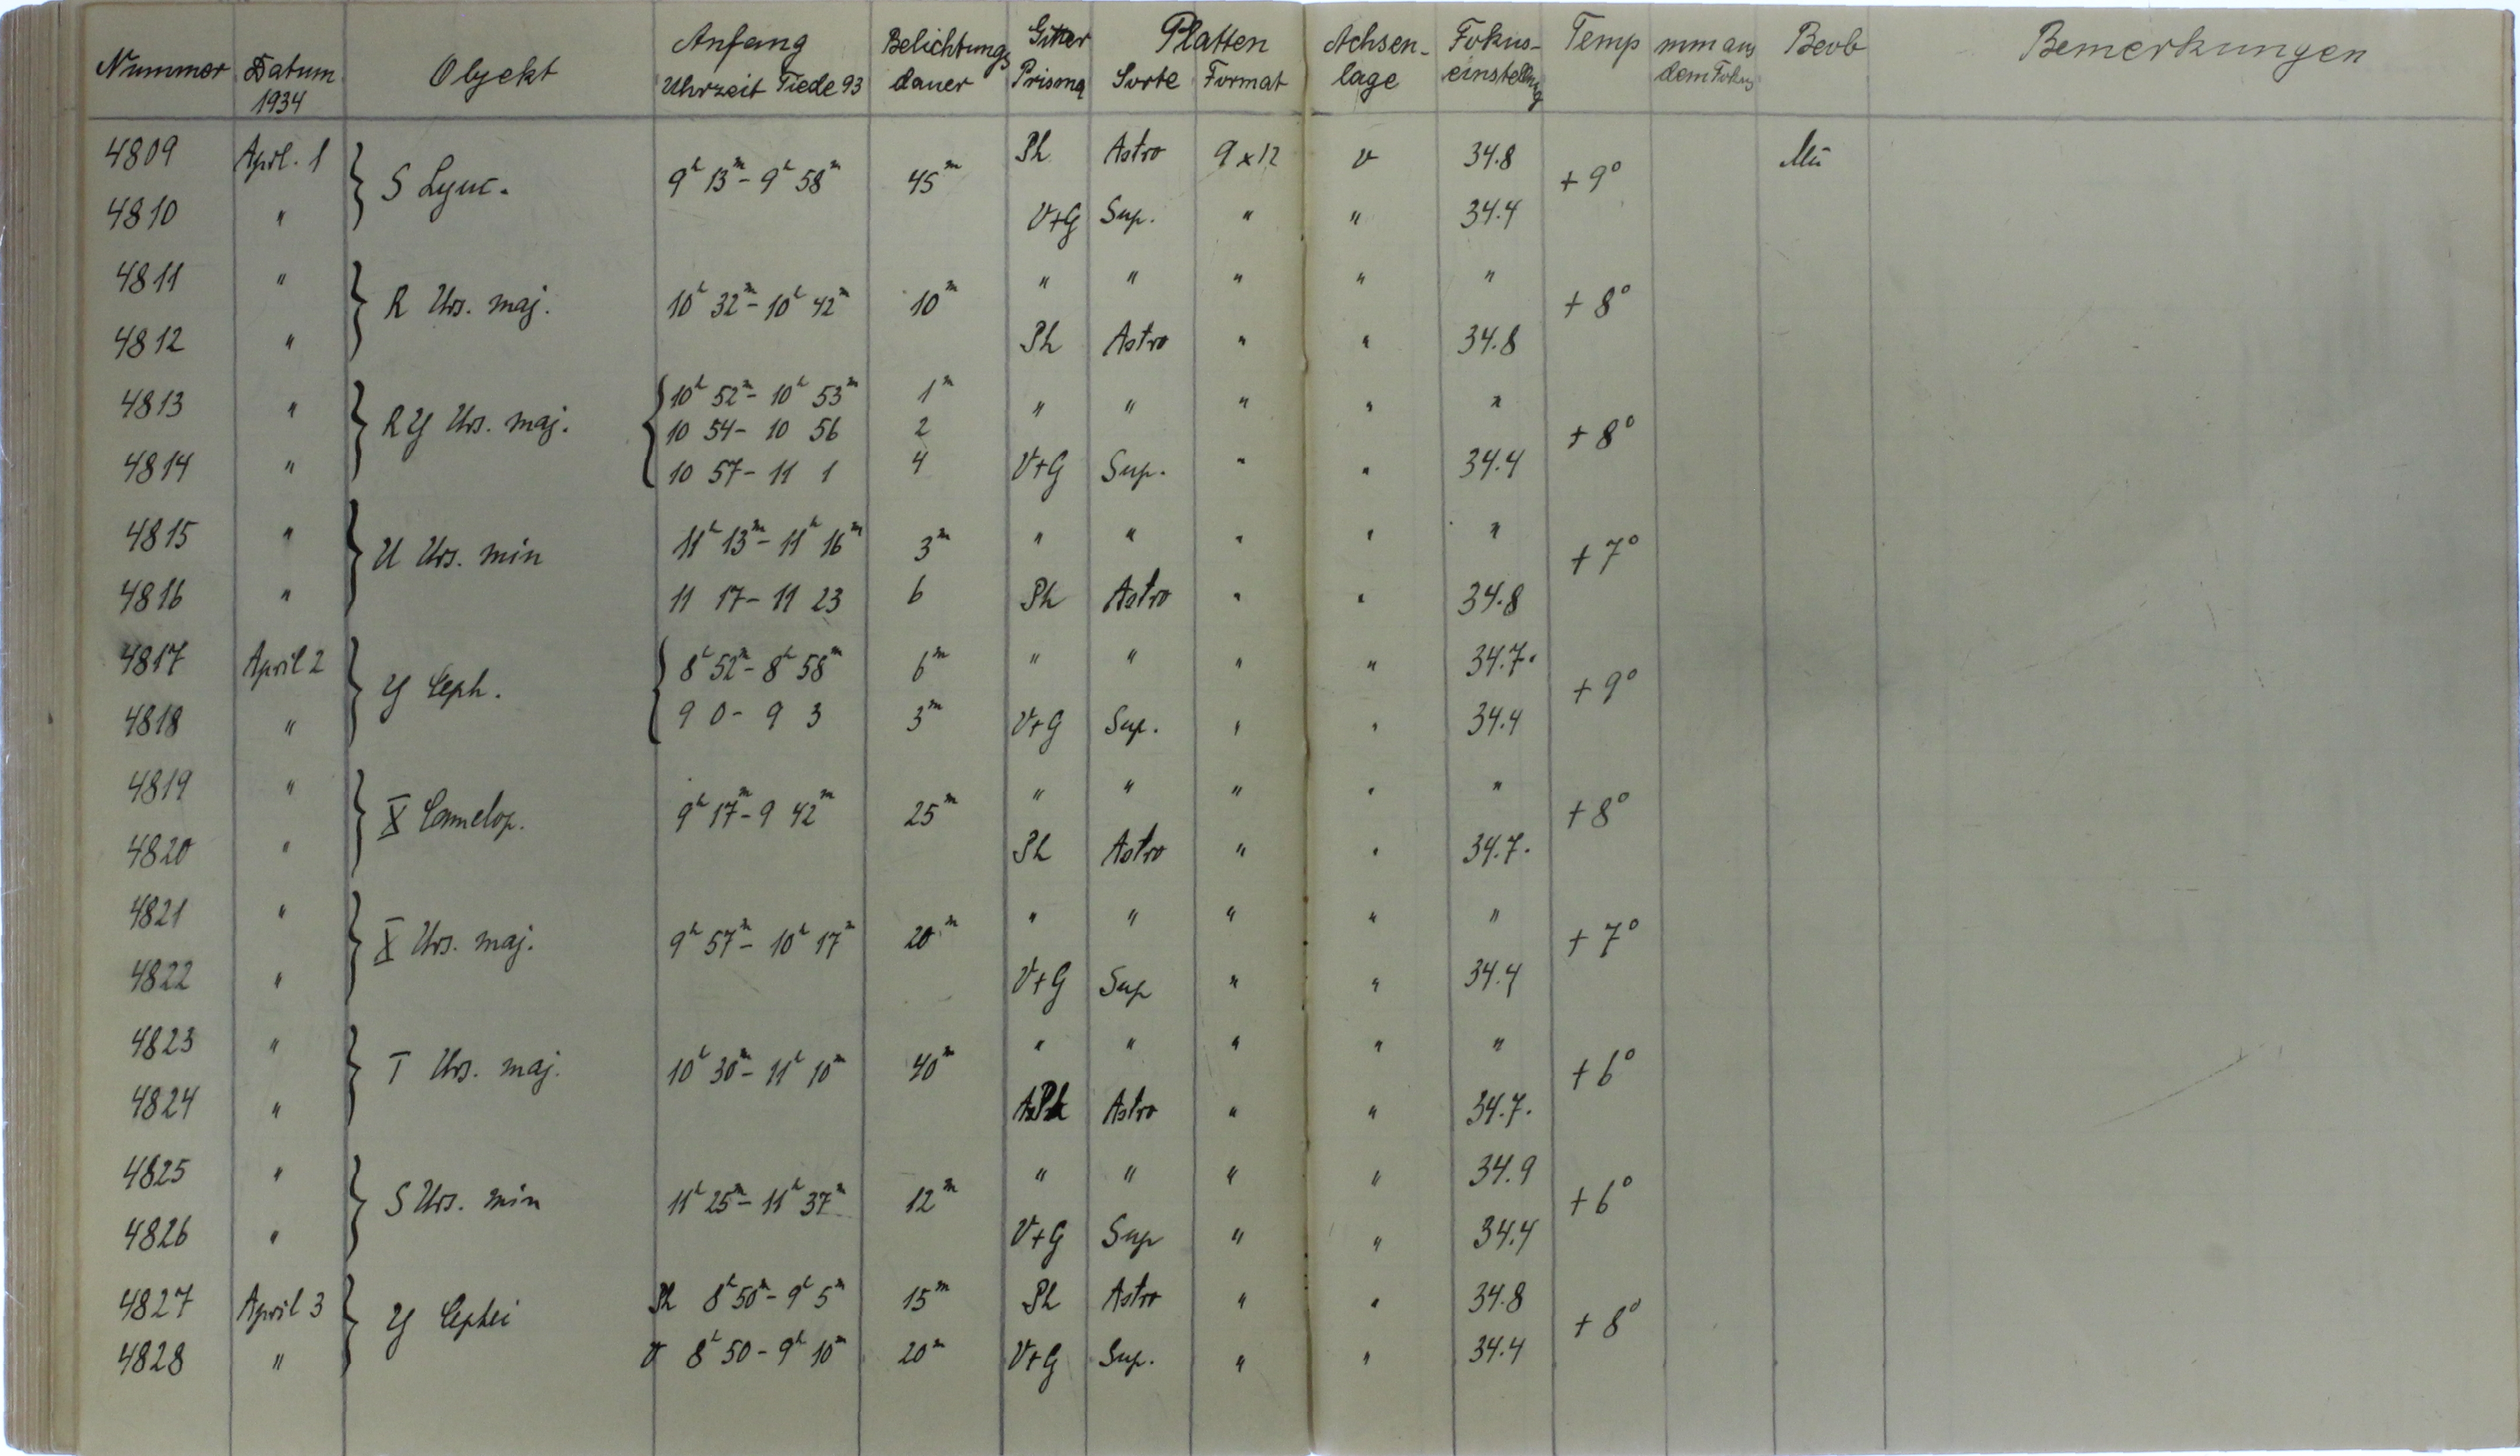 Nummer Datum 1934 Objekt Anfang Uhrzeit Tiede 93 Belichtungsdauer Gitter Prisma Platten Sorte Format Achsenlage Fokuseinstellung Temp mm aus dem Fokus Beob Bemerkungen
4809 April. 1 Ph Astro 9 x 12 v 34.8 Mü
} S Lync. 9h 13m - 9h 58m 45m + 9°
4810 " V+G Sup. " " 34.4
4811 " " " " " "
} R Urs. maj. 10h 32m - 10h 42m 10m + 8°
4812 " Ph Astro " " 34.8
4813 " { 10h 52m - 10h 53m 1m " " " " "
} RY Urs. maj. 10 54 - 10 56 2 + 8°
4814 " 10 57 - 11 1 4 V+G Sup. " " 34.4
4815 " 11h 13m - 11h 16m 3m " " " " "
} U Urs. min + 7°
4816 " 11 17 - 11 23 6 Ph Astro " " 34.8
4817 April 2 { 8h 52m - 8h 58m 6m " " " " 34.7.
} Y Ceph. + 9°
4818 " 9 0 - 9 3 3m V+G Sup. " " 34.4
4819 " " " " " "
} X Camelop. 9h 17m - 9 42m 25m + 8°
4820 " Ph Astro " " 34.7.
4821 " " " " " "
} X Urs. maj. 9h 57m - 10h 17m 20m + 7°
4822 " V+G Sup " " 34.4
4823 " " " " " "
} T Urs. maj. 10h 30m - 11h 10m 40m + 6°
4824 " Ph Astro " " 34.7.
4825 " " " " " 34.9
} S Urs. min 11h 25m - 11h 37m 12m + 6°
4826 " V+G Sup " " 34.4
4827 April 3 Ph 8h 50m - 9h 5m 15m Ph Astro " " 34.8
} Y Cephei + 8°
4828 " v 8h 50 - 9h 10m 20m V+G Sup. " " 34.4